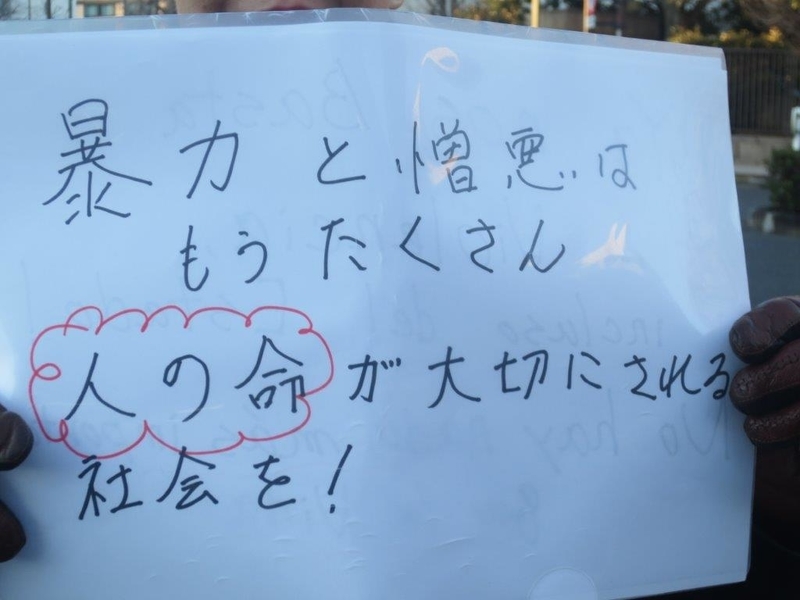 暴力と憎悪は
もうたくさん
人の命が大切にされる
社会を!